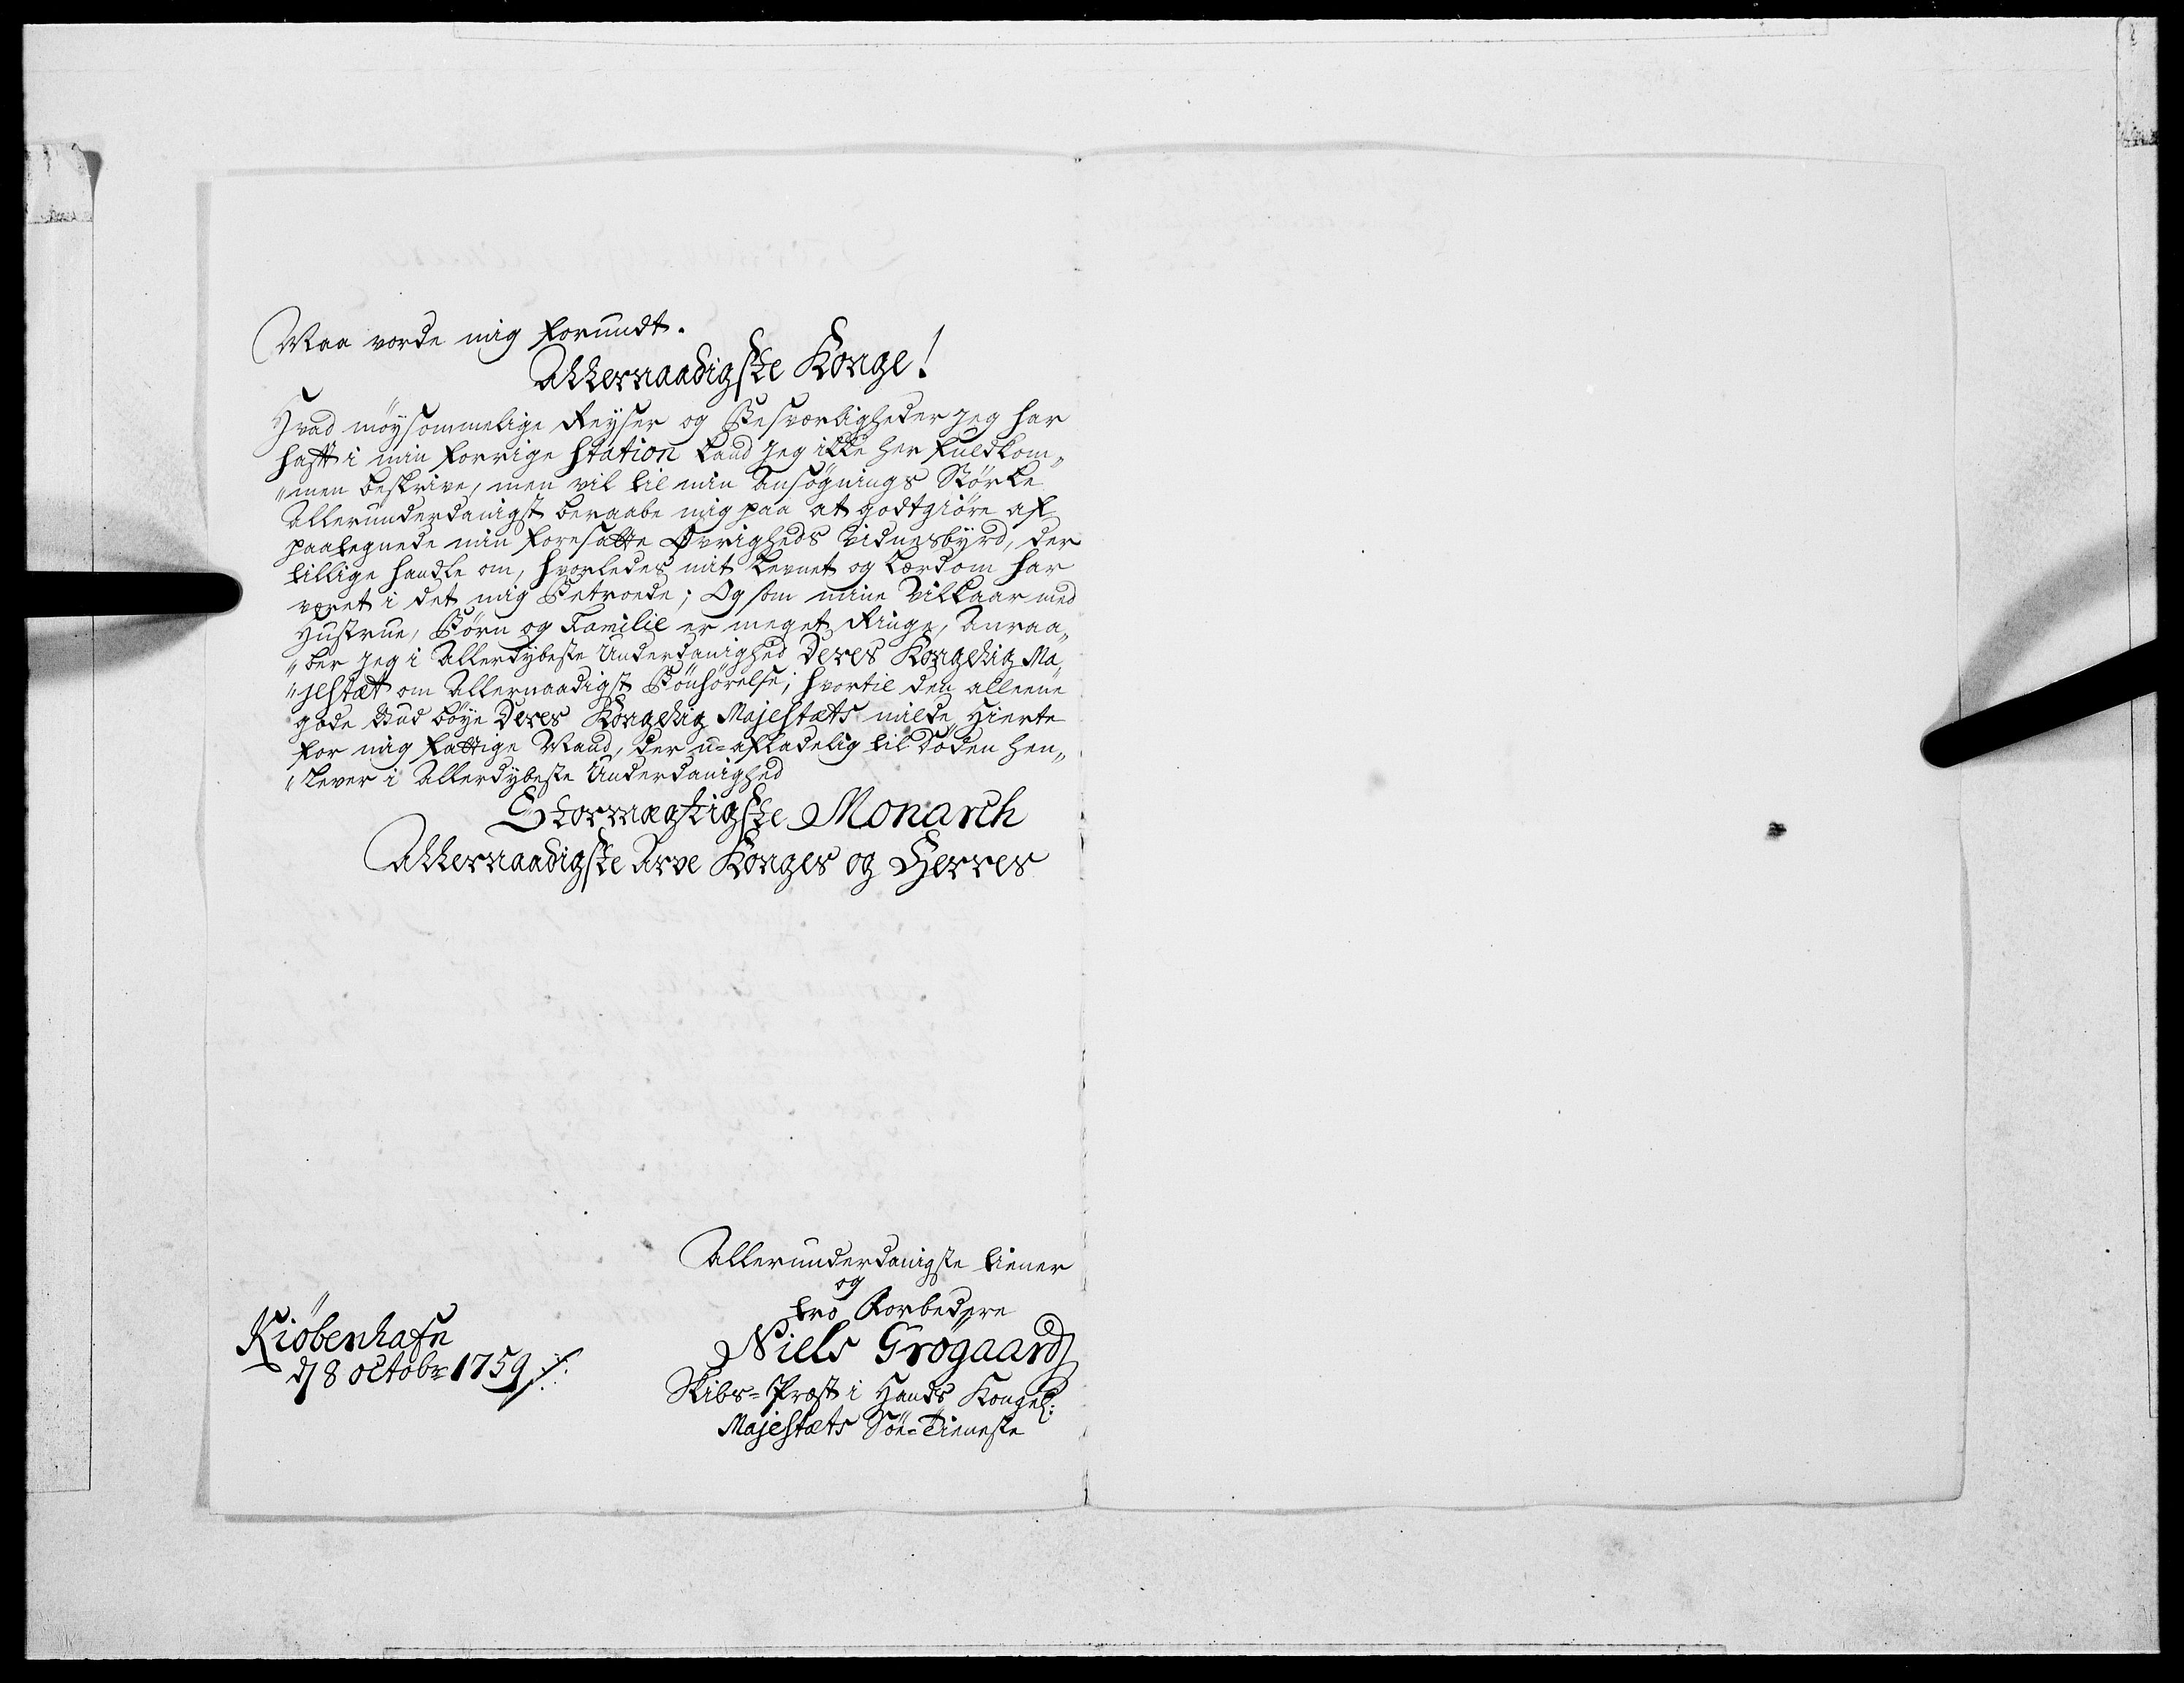 Maa vorde mig forundt.
Allernaadigste Konge!
Hvad möysommelige Reyser og Besværligheder jeg har
hafft i min forrige Station kand jeg ikke her fuldkom„
„men beskrive, men vil til min Ansögnings Störke
Allerunderdanigst beraabe mig paa at godtgiöre af
paategnede min foresatte Övrigheds Vidnesbyrd, der
tillige handle om, hvorledes mit Levnet og Lærdom har
været i det mig Betroede; Og som mine Vilkaar med
Hustrue, Börn og Familie er meget Ringe, Anraa„
„ber jeg i Allerdybeste Underdanighed Deres Kongelig Ma„
„jestæt om Allernaadigst Bönhörelse; hvortil den alleene
gode Gud böye Deres Kongelig Majestæts milde Hierte
for mig fattige Mand, der u=afladelig til Döden hen„
„lever i Allerdybeste Underdanighed
Stormægtigste Monarch
Allernaadigste Arve Konges og Herres
Allerunderdanigste tiener
og
tro Forbedere
Niels Grogaard
Skibs=Præst i Hands Kongel:
Majestæts Söe=Tieneste
Kiöbenhafn
d 8 octobr 1759